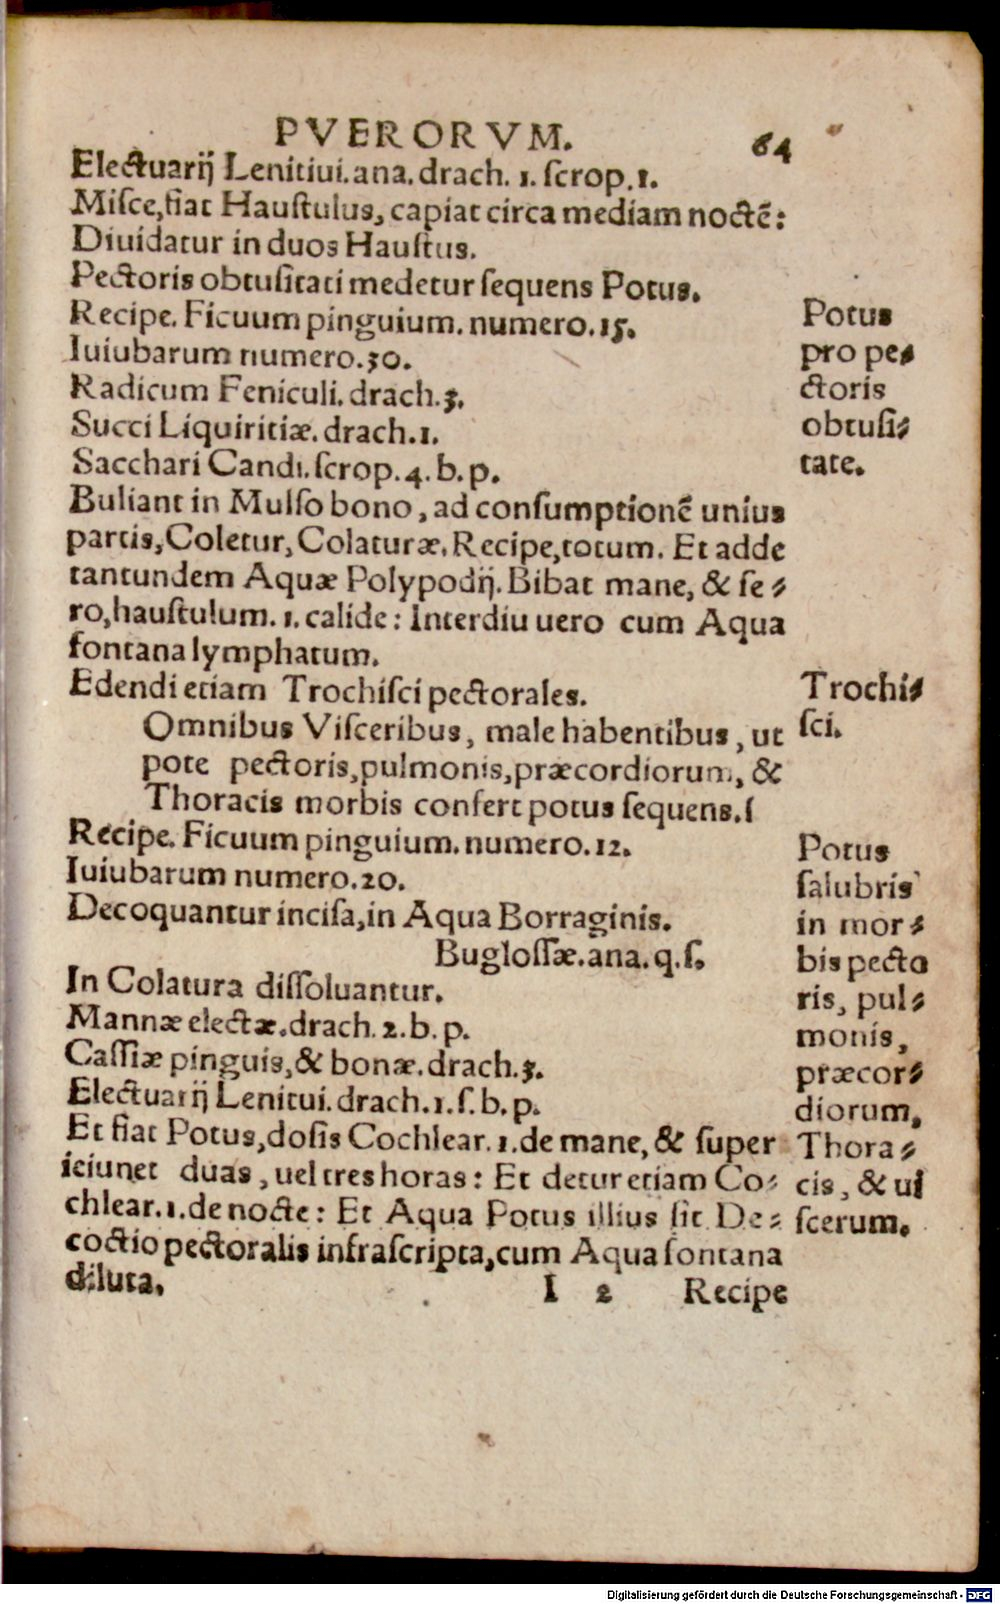 PVERORVM.
64
Electuarij Lenitiui. ana. drach. 1. ſcrop. 1.
Miſce, fiat Hauſtulus, capiat circa mediam noctē:
Diuidatur in duos Hauſtus.
Pectoris obtuſitati medetur ſequens Potus.
Recipe. Ficuum pinguium. numero. 15.
Iuiubarum numero. 30.
Radicum Feniculi. drach. 3.
Succi Liquiritiæ. drach. 1.
Sacchari Candi. ſcrop. 4. b. p.
Buliant in Mulſo bono, ad conſumptionē unius
partis, Coletur, Colaturæ. Recipe, totum. Et adde
tantundem Aquæ Polypodij. Bibat mane, & ſe⸗
ro, hauſtulum. 1. calide: Interdiu uero cum Aqua
fontana lymphatum.
Edendi etiam Trochiſci pectorales.
Omnibus Viſceribus, male habentibus, ut
pote pectoris, pulmonis, præcordiorum, &
Thoracis morbis confert potus ſequens. ſ
Recipe. Ficuum pinguium. numero. 12.
Iuiubarum numero. 20.
Decoquantur inciſa, in Aqua Borraginis.
Bugloſſæ. ana. q. ſ.
In Colatura diſſoluantur.
Mannæ electæ. drach. 2. b. p.
Caſſiæ pinguis, & bonæ. drach. 3.
Electuarij Lenitui. drach. 1. ſ. b. p.
Et fiat Potus, doſis Cochlear. 1. de mane, & ſuper
ieiunet duas, uel tres horas: Et detur etiam Co⸗
chlear. 1. de nocte: Et Aqua Potus illius ſit De⸗
coctio pectoralis infraſcripta, cum Aqua fontana
diluta.
I 2 Recipe
Potus
pro pe⸗
ctoris
obtuſi⸗
tate.
Trochi⸗
ſci.
Potus
ſalubris
in mor⸗
bis pecto
ris, pul⸗
monis,
præcor⸗
diorum,
Thora⸗
cis, & ui
ſcerum.
Digitalisierung gefördert durch die Deutsche Forschungsgemeinschaft - DFG